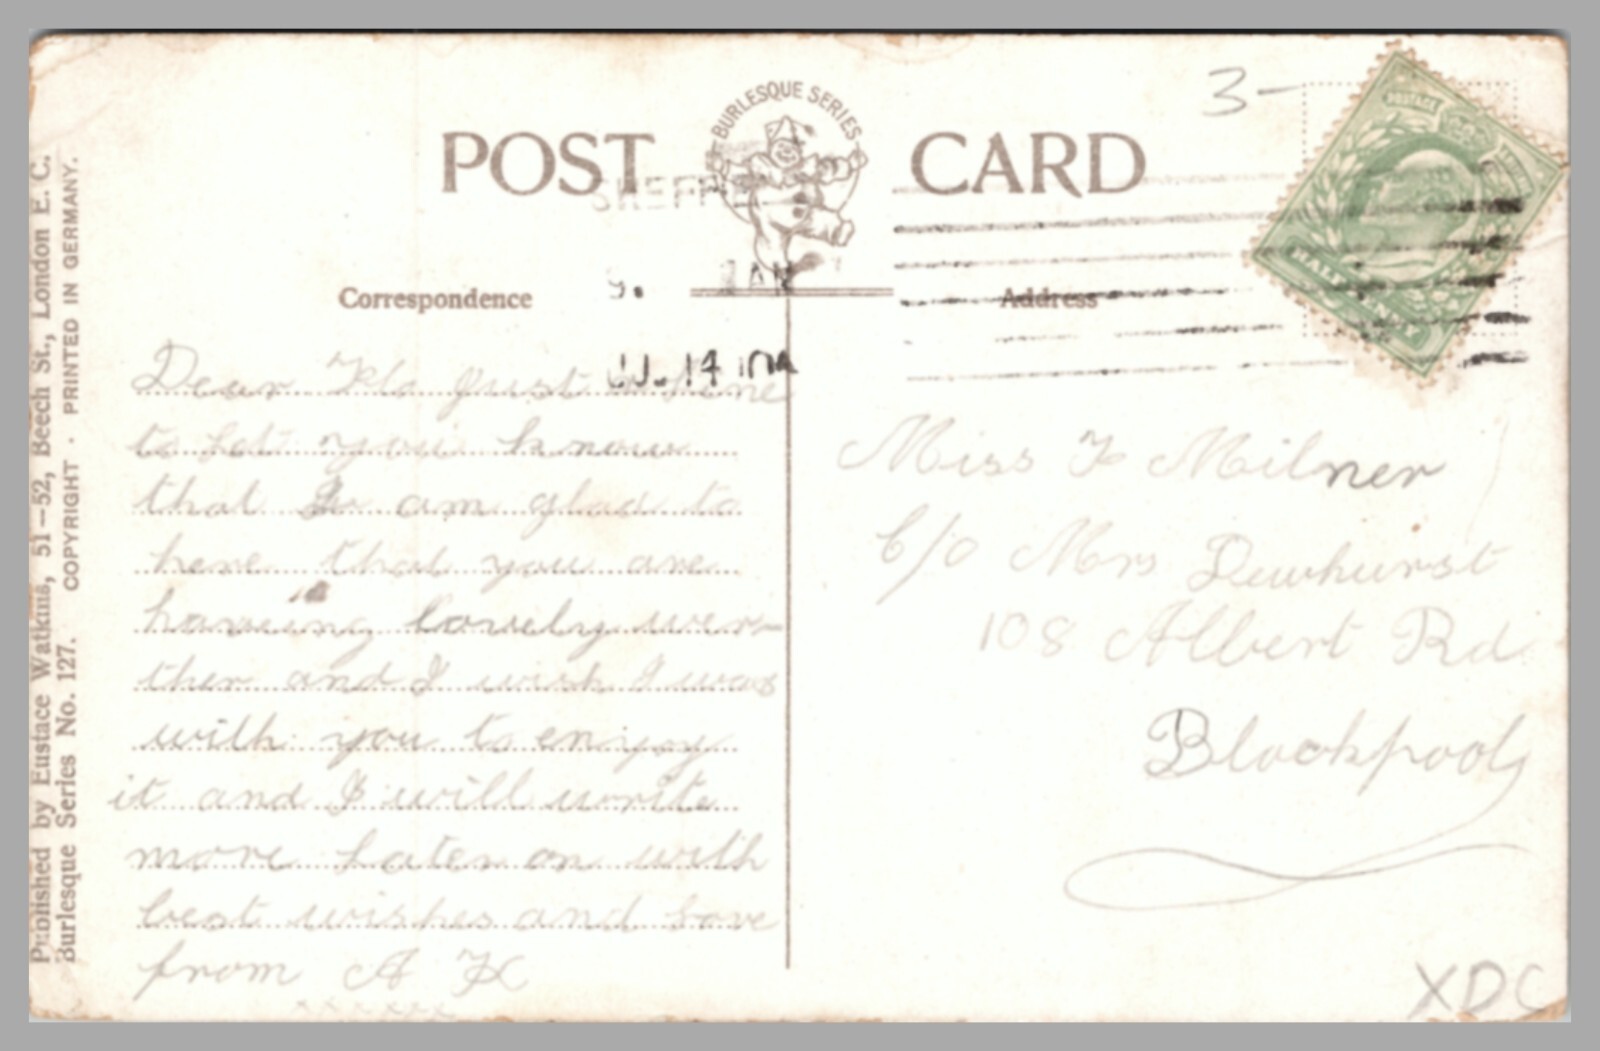 BURLESQUE SERIES
POST CARD
3-
SHEFF
9. AM
JU 14 10
HALF PENNY
POSTAGE
Correspondence
Address
Dear Flo Just a line
to let you know
that I am glad to
here that you are
haveing lovely wer-
ther and I wish I was
with you to enjoy
it and I will write
more later on with
best wishes and love
from A
xxxxxxx
Miss F Milner
C/O Mrs Dewhurst
108 Albert Rd
Blackpool
XDC
Published by Eustace Watkins, 51-52, Beech St., London E. C.
Burlesque Series No. 127. COPYRIGHT · PRINTED IN GERMANY.